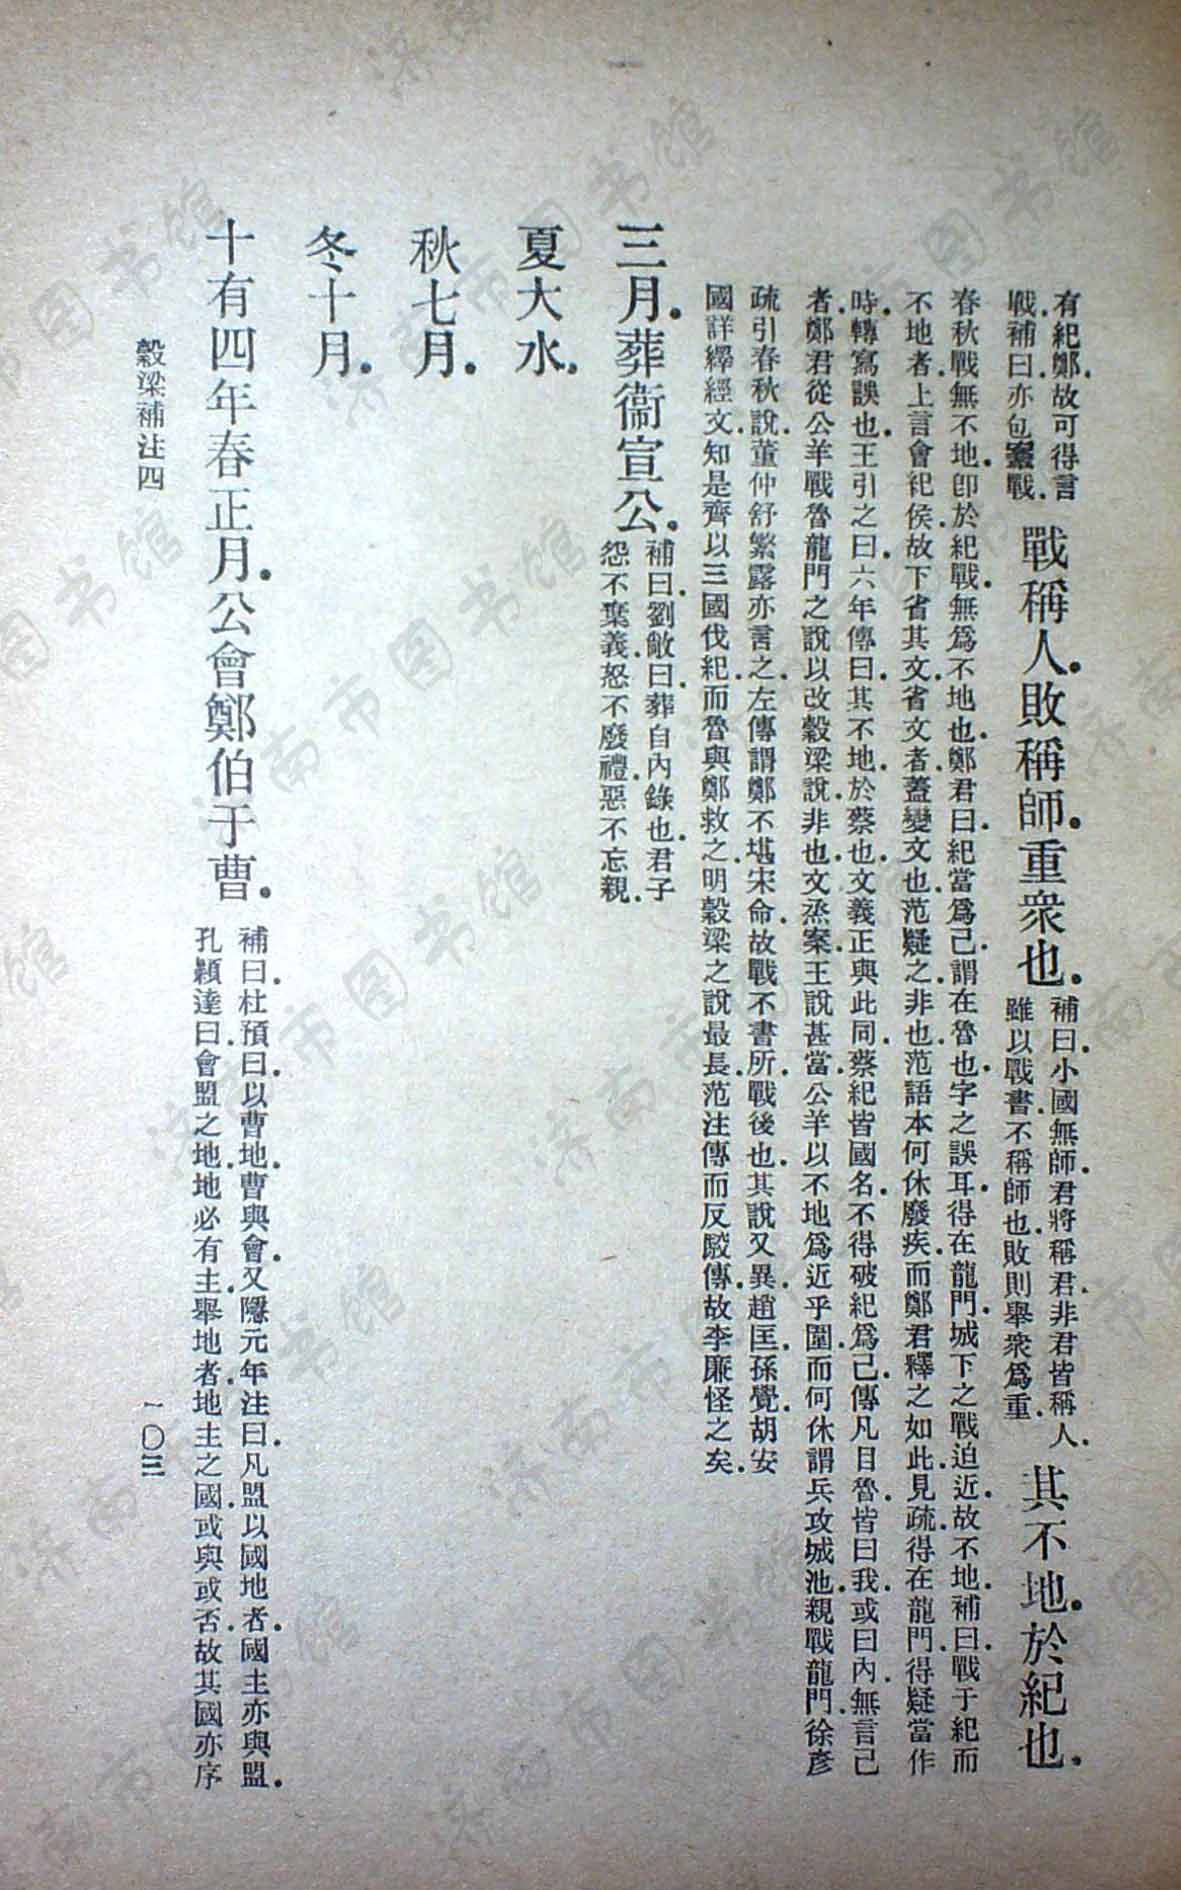 有紀鄭.故可得言
戰.補曰.亦包案戰.
戰稱人.敗稱師.重衆也.
補曰.小國無師.君將稱君.非君皆稱人.
雖以戰書.不稱師也.敗則舉衆爲重.
其不地.於紀也.
春秋戰無不地.卽於紀戰.無爲不地也.鄭君曰.紀當爲己.謂在魯也.字之誤耳.得在龍門.城下之戰.迫近.故不地.補曰.戰于紀而
不地者.上言會紀侯.故下省其文.省文者.蓋變文也.范疑之.非也.范語本何休廢疾.而鄭君釋之如此.見疏.得在龍門.得疑當作
時.轉寫誤也.王引之曰.六年傳曰.其不地.於蔡也.文義正與此同.蔡紀皆國名.不得破紀爲己.傳凡目魯.皆曰我.或曰內.無言己
者.鄭君從公羊戰魯龍門之說.以改穀梁說.非也.文烝案.王說甚當.公羊以不地爲近乎圍.而何休謂兵攻城池.親戰龍門.徐彥
疏引春秋說.董仲舒繁露亦言之.左傳謂鄭不堪宋命.故戰不書所戰後也.其說又異.趙匡.孫覺.胡安
國詳繹經文.知是齊以三國伐紀.而魯與鄭救之.明穀梁之說最長.范注傳而反駮傳.故李廉怪之矣.
三月.葬衞宣公.
補曰.劉敞曰.葬自內錄也.君子
怨不棄義.怒不廢禮.惡不忘親.
夏大水.
秋七月.
冬十月.
十有四年春正月.公會鄭伯于曹.
補曰.杜預曰.以曹地.曹與會.又隱元年注曰.凡盟以國地者.國主亦與盟.
孔穎達曰.會盟之地.地必有主.舉地者.地主之國.或與或否.故其國亦序
穀梁補注四
一〇三
济南市图书馆